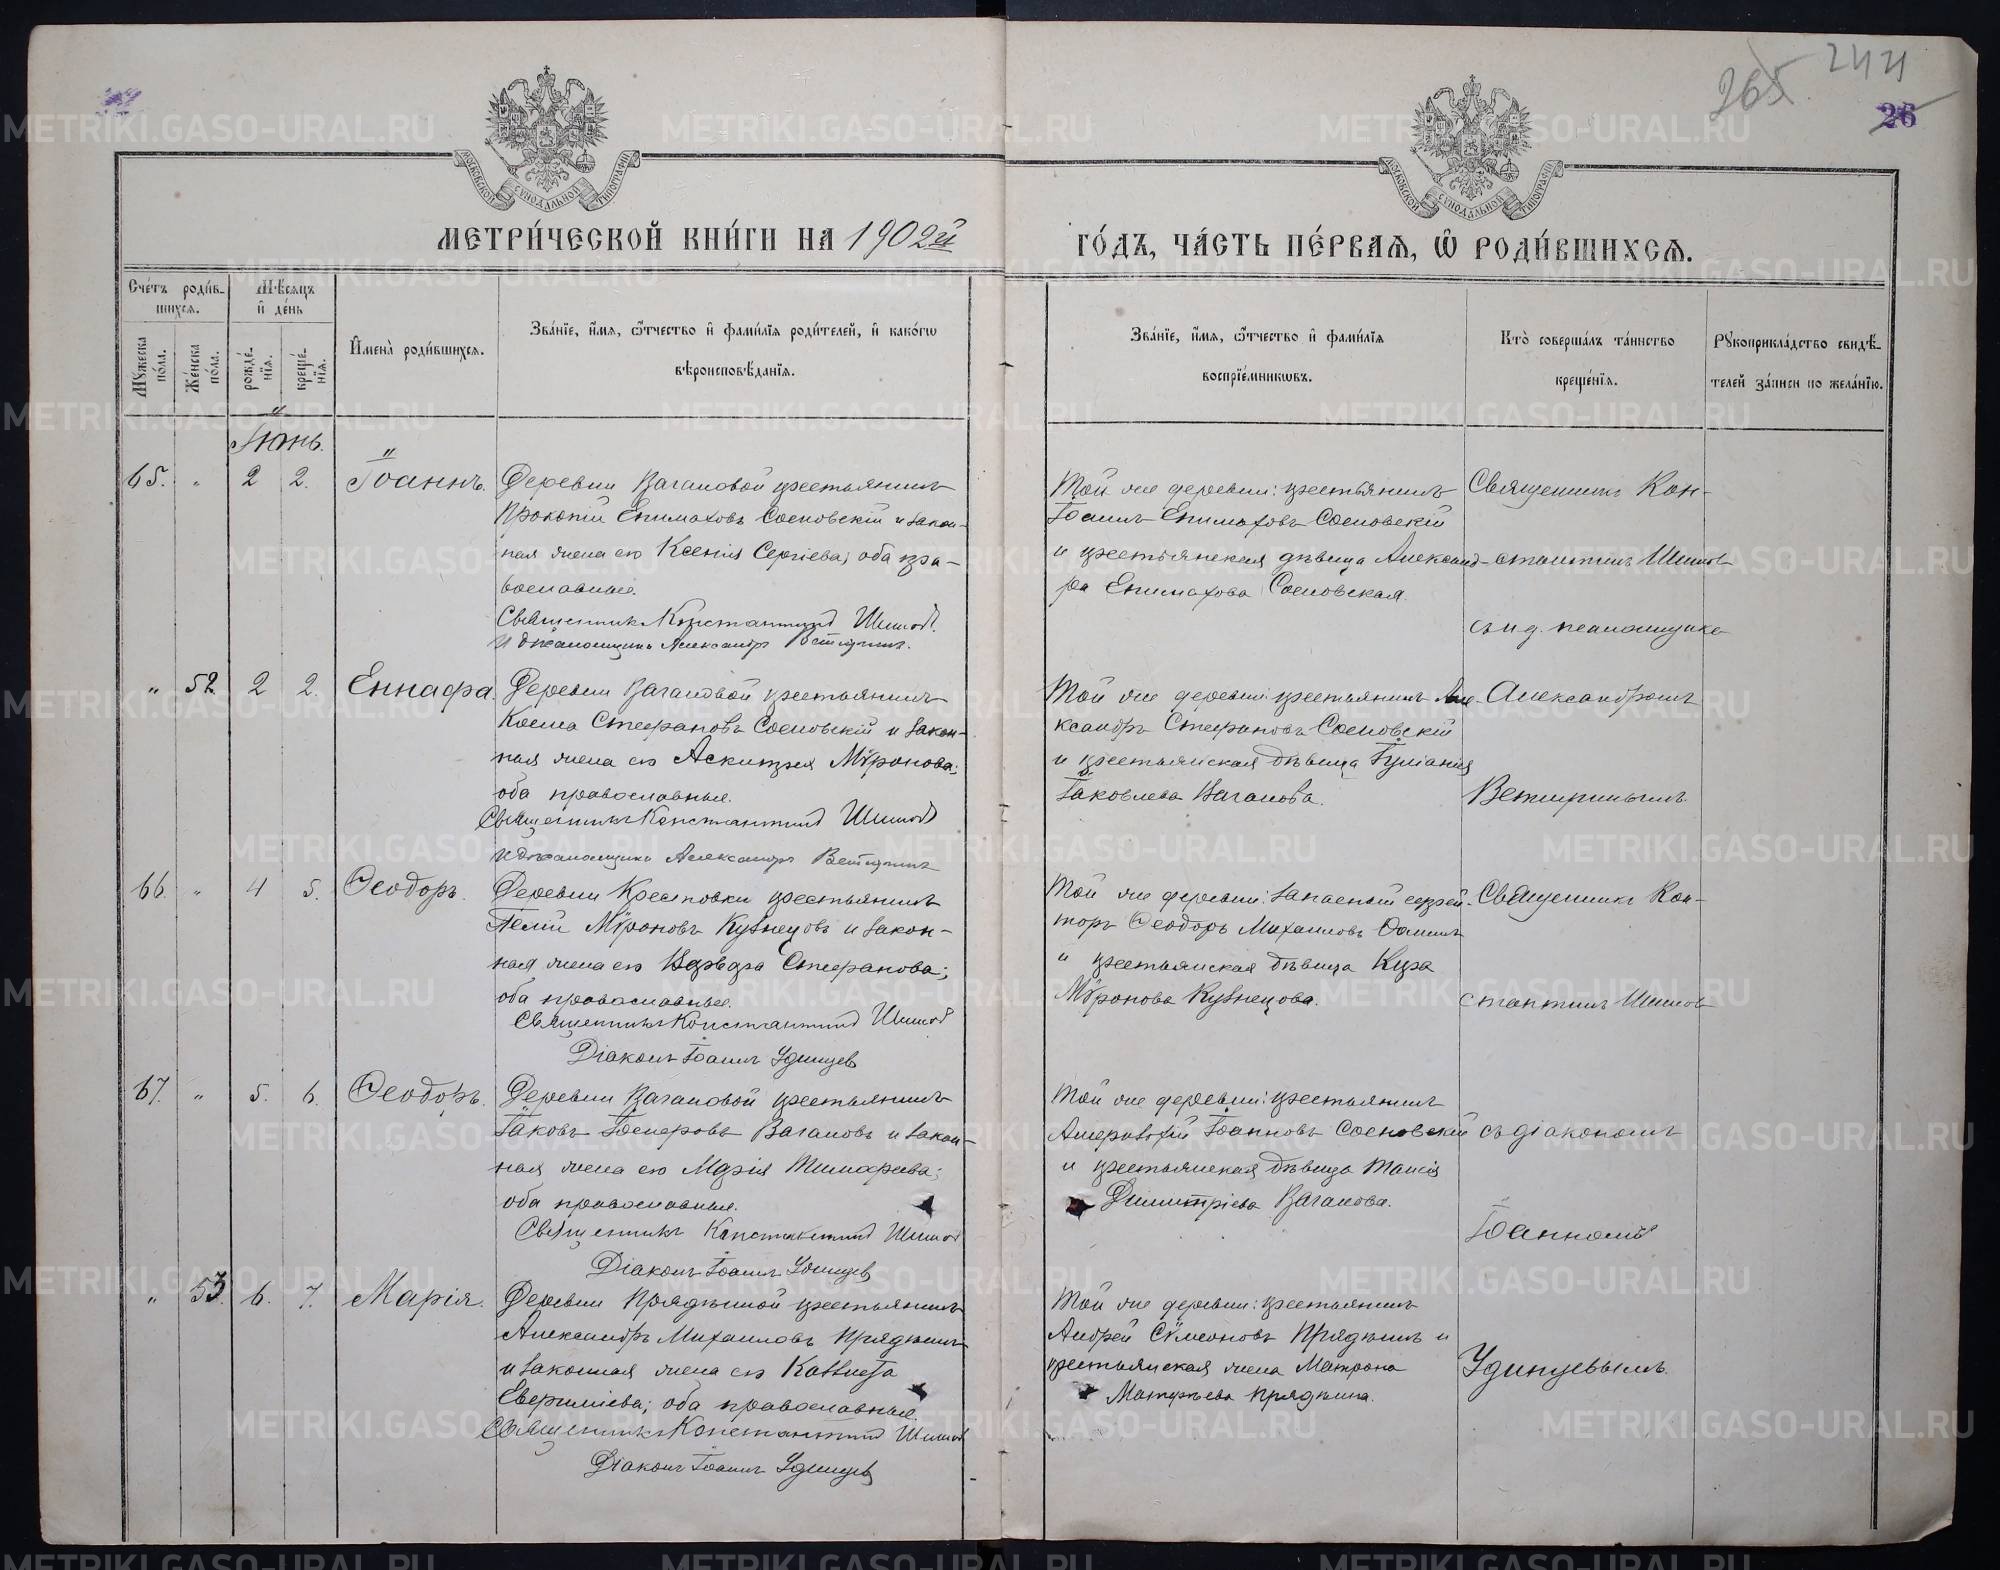 265. 244
26
МОСКОВСКОЙ СѴНОДАЛЬНОЙ ТИПОГРАФІИ
МОСКОВСКОЙ СѴНОДАЛЬНОЙ ТИПОГРАФІИ
МЕТРИ́ЧЕСКОЙ КНИ́ГИ НА 1902й
ГО́ДЪ, ЧА́СТЬ ПЕ́РВАЯ, Ѽ РОДИ́ВШИХСЯ.
Сче́тъ роди́в-
шихся.
Мѣ́сяцъ
и҆ де́нь
Мꙋ́жеска по́ла.
Же́нска по́ла.
рожде́-
нїя.
креще́-
нїя.
И҆мена̀ роди́вшихся.
Зва́нїе, и҆́мя, ѻ҆́тчество и҆ фами́лїя роди́телей, и҆ како́гѡ
вѣроисповѣ́данїя.
Зва́нїе, и҆́мя, ѻ҆́тчество и҆ фами́лїя
воспрїе́мникѡвъ.
Кто̀ соверша́лъ та́инство
креще́нїя.
Рꙋкоприкла́дство свидѣ́-
телей за́писи по жела́нїю.
Іюнь.
65. " 2 2. Іоаннъ. Деревни Вагановой крестьянинъ
Прокопій Епимаховъ Сосновскій и закон-
ная жена его Ксенія Сергіева; оба пра-
вославные.
Священник Константинъ Шишовъ.
И д. псаломщика Александръ Ветлугинъ.
Той же деревни: крестьянинъ
Іоаннъ Епимаховъ Сосновскій
и крестьянская дѣвица Александ-
ра Епимахова Сосновская.
Священникъ Кон-
стантинъ Шишов
съ и д. псаломщика
" 52. 2 2. Еннафа. Деревни Вагановой крестьянинъ
Косма Стефановъ Сосновскій и закон-
ная жена его Аскитрея Мѵронова;
оба православные.
Священникъ Константинъ Шишовъ
И д. псаломщика Александръ Ветлугинъ
Той же деревни: крестьянинъ Але-
ксандръ Стефановъ Сосновскій
и крестьянская дѣвица Іуліанія
Іаковлева Ваганова.
Александромъ
Ветлугинымъ.
66. " 4 5. Ѳеодоръ. Деревни Крестовки крестьянинъ
Мѵроновъ Кузнецовъ и закон-
ная жена его Стефанова;
оба православные.
Священникъ Константинъ Шишовъ
Діаконъ Іоаннъ Удинцев
Той же деревни: запасный ефрей-
торъ Ѳеодоръ Михаиловъ
и крестьянская дѣвица Кира
Мѵронова Кузнецова.
Священникъ Кон-
стантинъ Шишов
67. " 5. 6. Ѳеодоръ. Деревни Вагановой крестьянинъ
Іаковъ Вагановъ и закон-
ная жена его Марія Тимофеева;
оба православные.
Священникъ Константинъ Шишов
Діаконъ Іоаннъ Удинцев
Той же деревни: крестьянинъ
Іоанновъ Сосновскій
и крестьянская дѣвица Таисія
Димитріева Ваганова.
съ діакономъ
Іоанномъ
" 53. 6. 7. Марія. Деревни Прядѣиной крестьянинъ
Александръ Михаиловъ Прядѣинъ
и законная жена его
оба православные.
Священникъ Константинъ Шишов
Діаконъ Іоаннъ Удинцев
Той же деревни: крестьянинъ
Андрей Сѵмеоновъ Прядѣинъ и
крестьянская жена Матрона
Матѳѣева Прядѣина.
Удинцевымъ.
METRIKI.GASO-URAL.RU